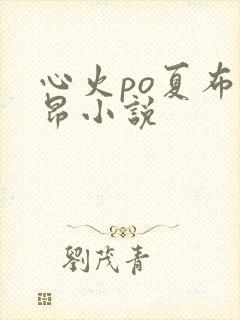 心火po夏布
昂小説
劉茂青